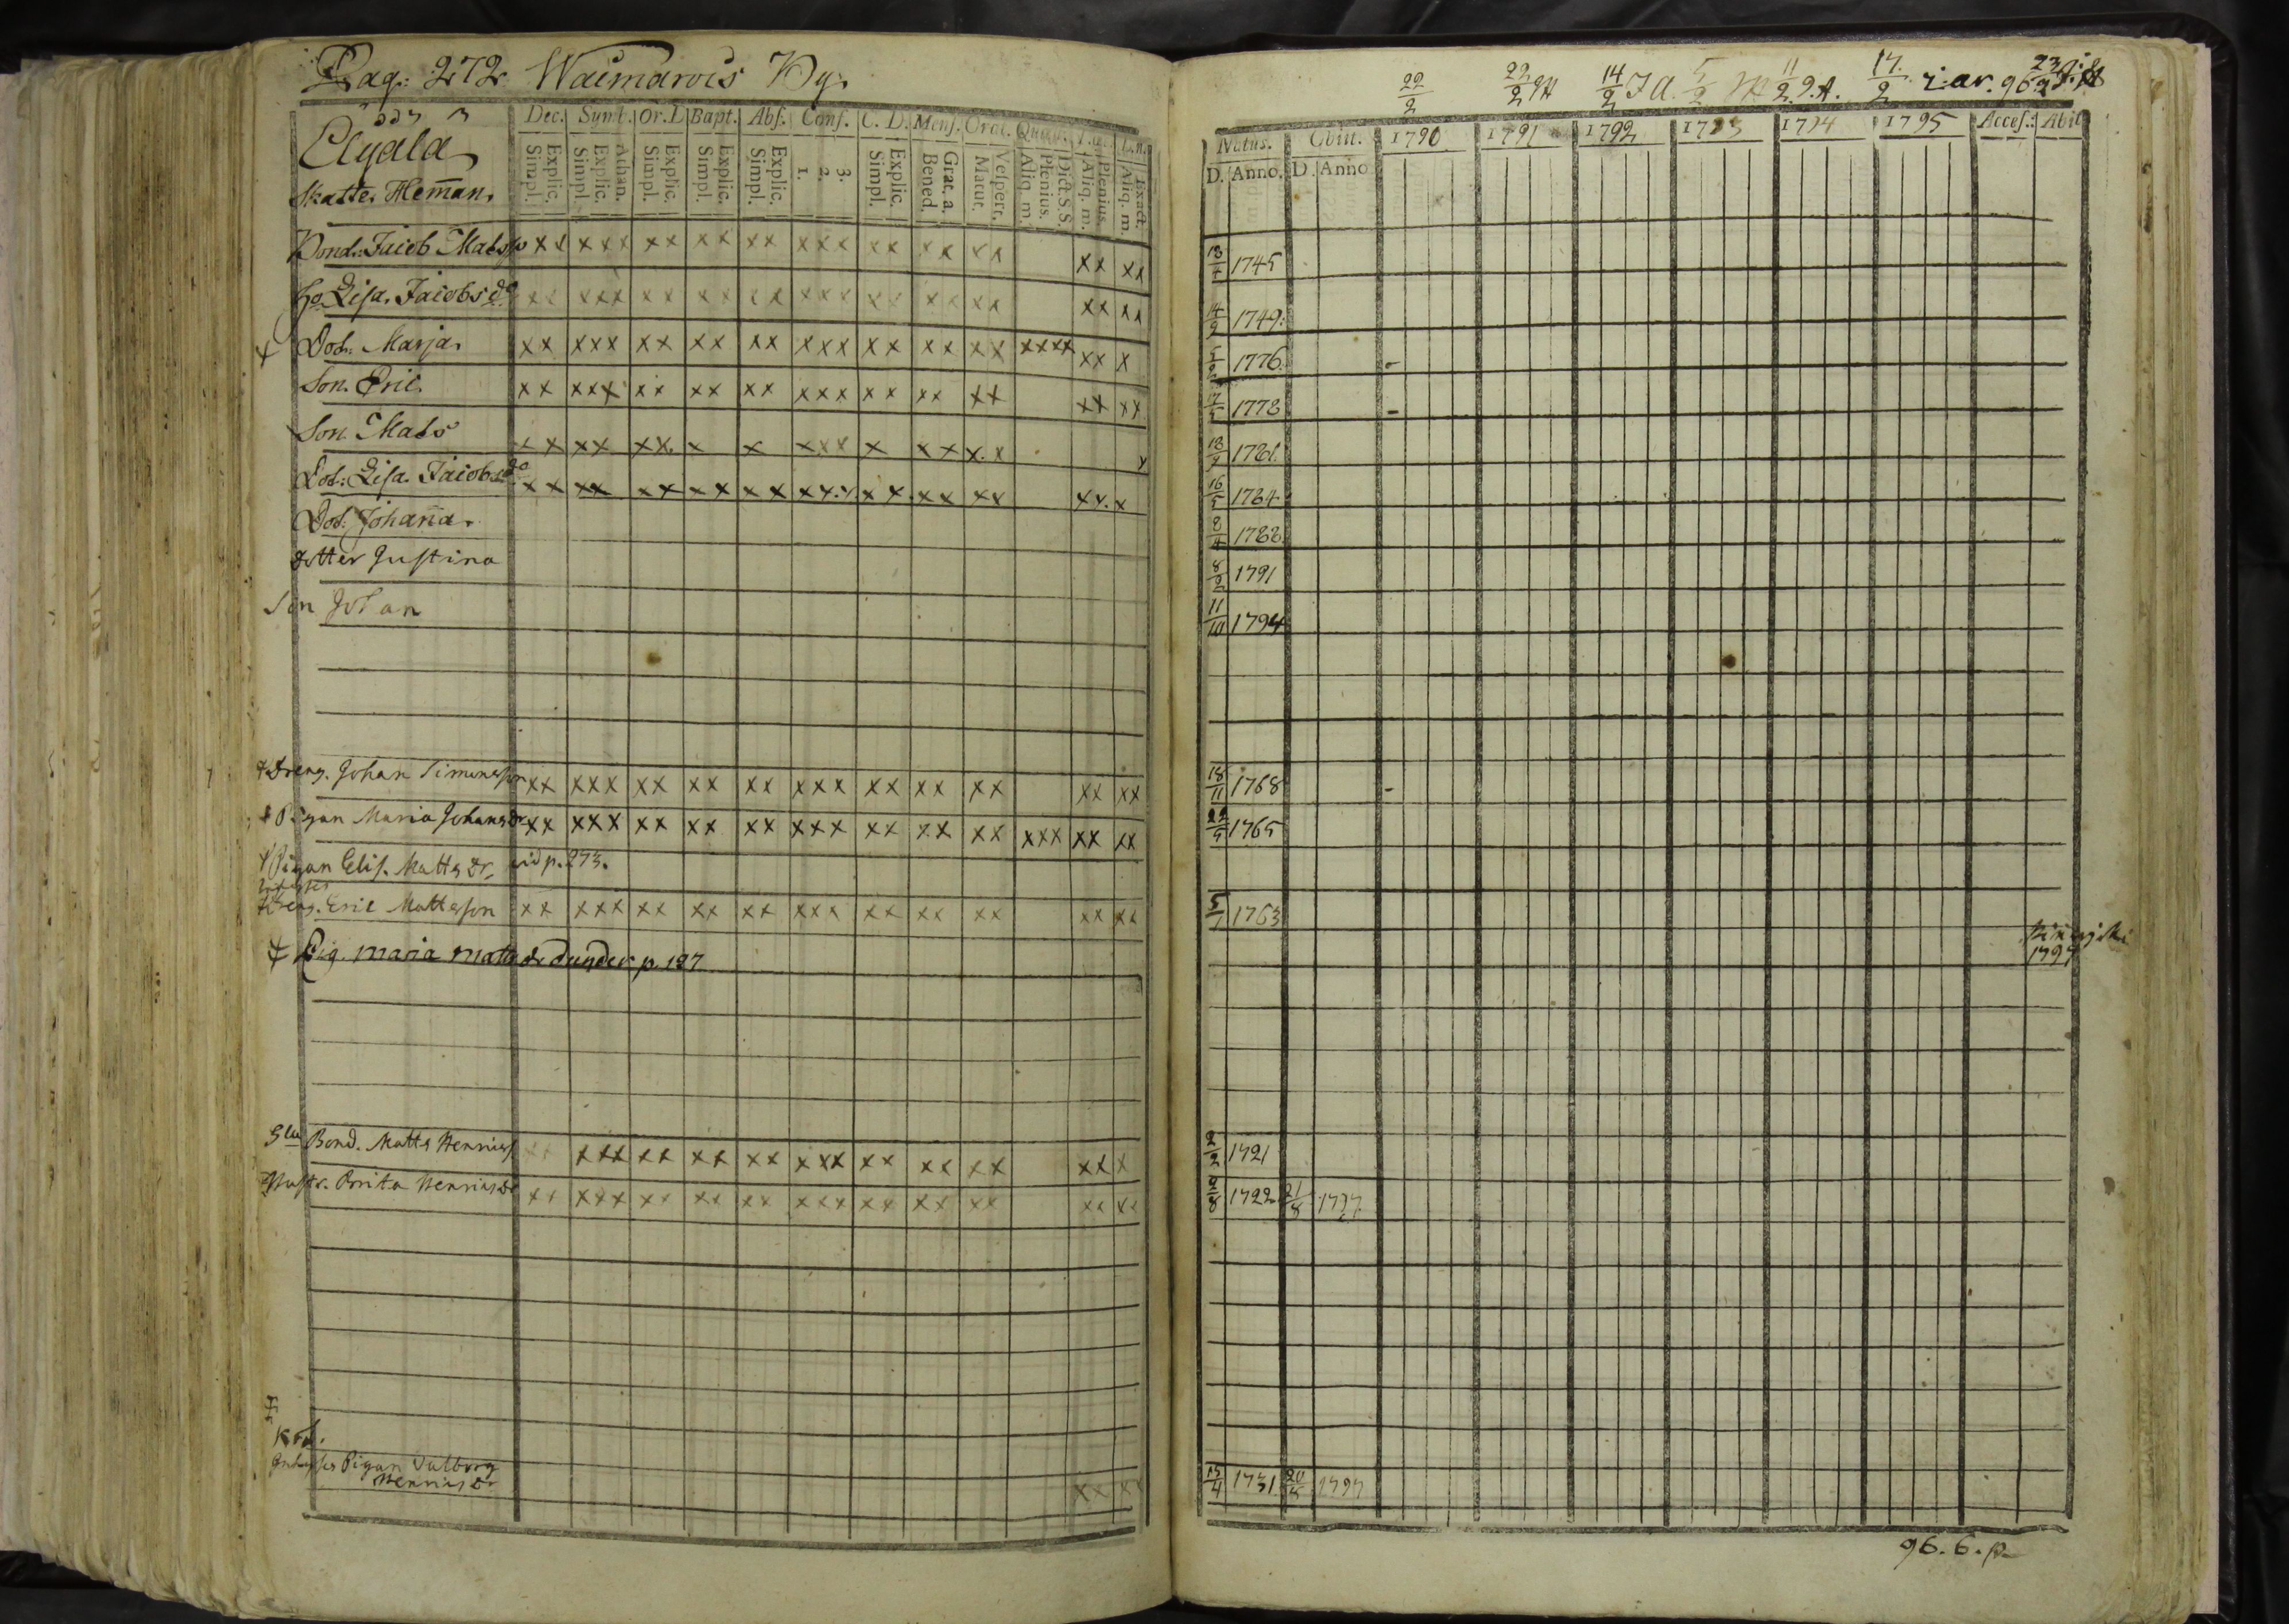 Pag. 272. Waimarois By.
Elyälä
Skatte. Hem̄an.
Dec. Symb. Or. D. Bapt. Abs. Conf. C. D. Mens. Orat. Quæst.
Explic. Simpl.
Athan. Explic. Simpl.
Explic. Simpl.
Explic. Simpl.
Explic. Simpl.
3. 2. 1.
Explic. Simpl.
Grat. a. Bened.
Vespert. Matut.
Dict. S.S. Plenius. Aliq. m.
Plenius. Aliq. m.
Exact. Aliq. m.
Bond. Jacob Matsso xx xxx xx xx xx xxx xx xx xx xx xx
Ho Lisa. Jacobs do xx xxx xx xx xx xxx xx xx xx xx xx
Dot. Marja. xx xxx xx xx xx xxx xx xx xx xxxx xx x
Son. Eric. xx xxx xx xx xx xxx xx xx xx xx xx
Son. Mats xx xx xx. x x xxx x xx x.x x
Dot: Lisa. Jacobsdo xx xx xx xx xx xx.x. xx. xx xx xx. x
Dot. Johan̄a.
dotter Justina
Son Johan
Dreng. Johan Simonsson xx xxx xx xx xx xxx xx xx xx xx xx
Pigan Maria Johansdr xx xxx xx xx xx xxx xx xx xx xxx xx xx
Pigan Elis. Matts dr, vid p. 273.
Dreng. Eric Mattsson xx xxx xx xx xx xxx xx xx xx xx xx
Pig. maria matts dr dunder p. 187
Bond. Matts Henriss xx xxx xx xx xx xxx xx xx xx xx x
Hustr. Brita Henrics dr xx xxx xx xx xx xxx xx xx xx xx xx
Pigan Valborg
Henrics dr xx xx
22/2 22/2 14/2 J A. 5/2 11/2 17/2 96
Natus. Obiit. 1790 1791 1792 1793 1794 1795 Acces. Abit
D. Anno. D. Anno
1745
14/9 1749.
1776.
1778
1781.
16/5 1784.
8/4 1788.
1791
11/10 1794
18/11 1768
22/5 1765
1763
1797
2/2 1721
1722 21/8 1797
1731 1797
96. 6. p.